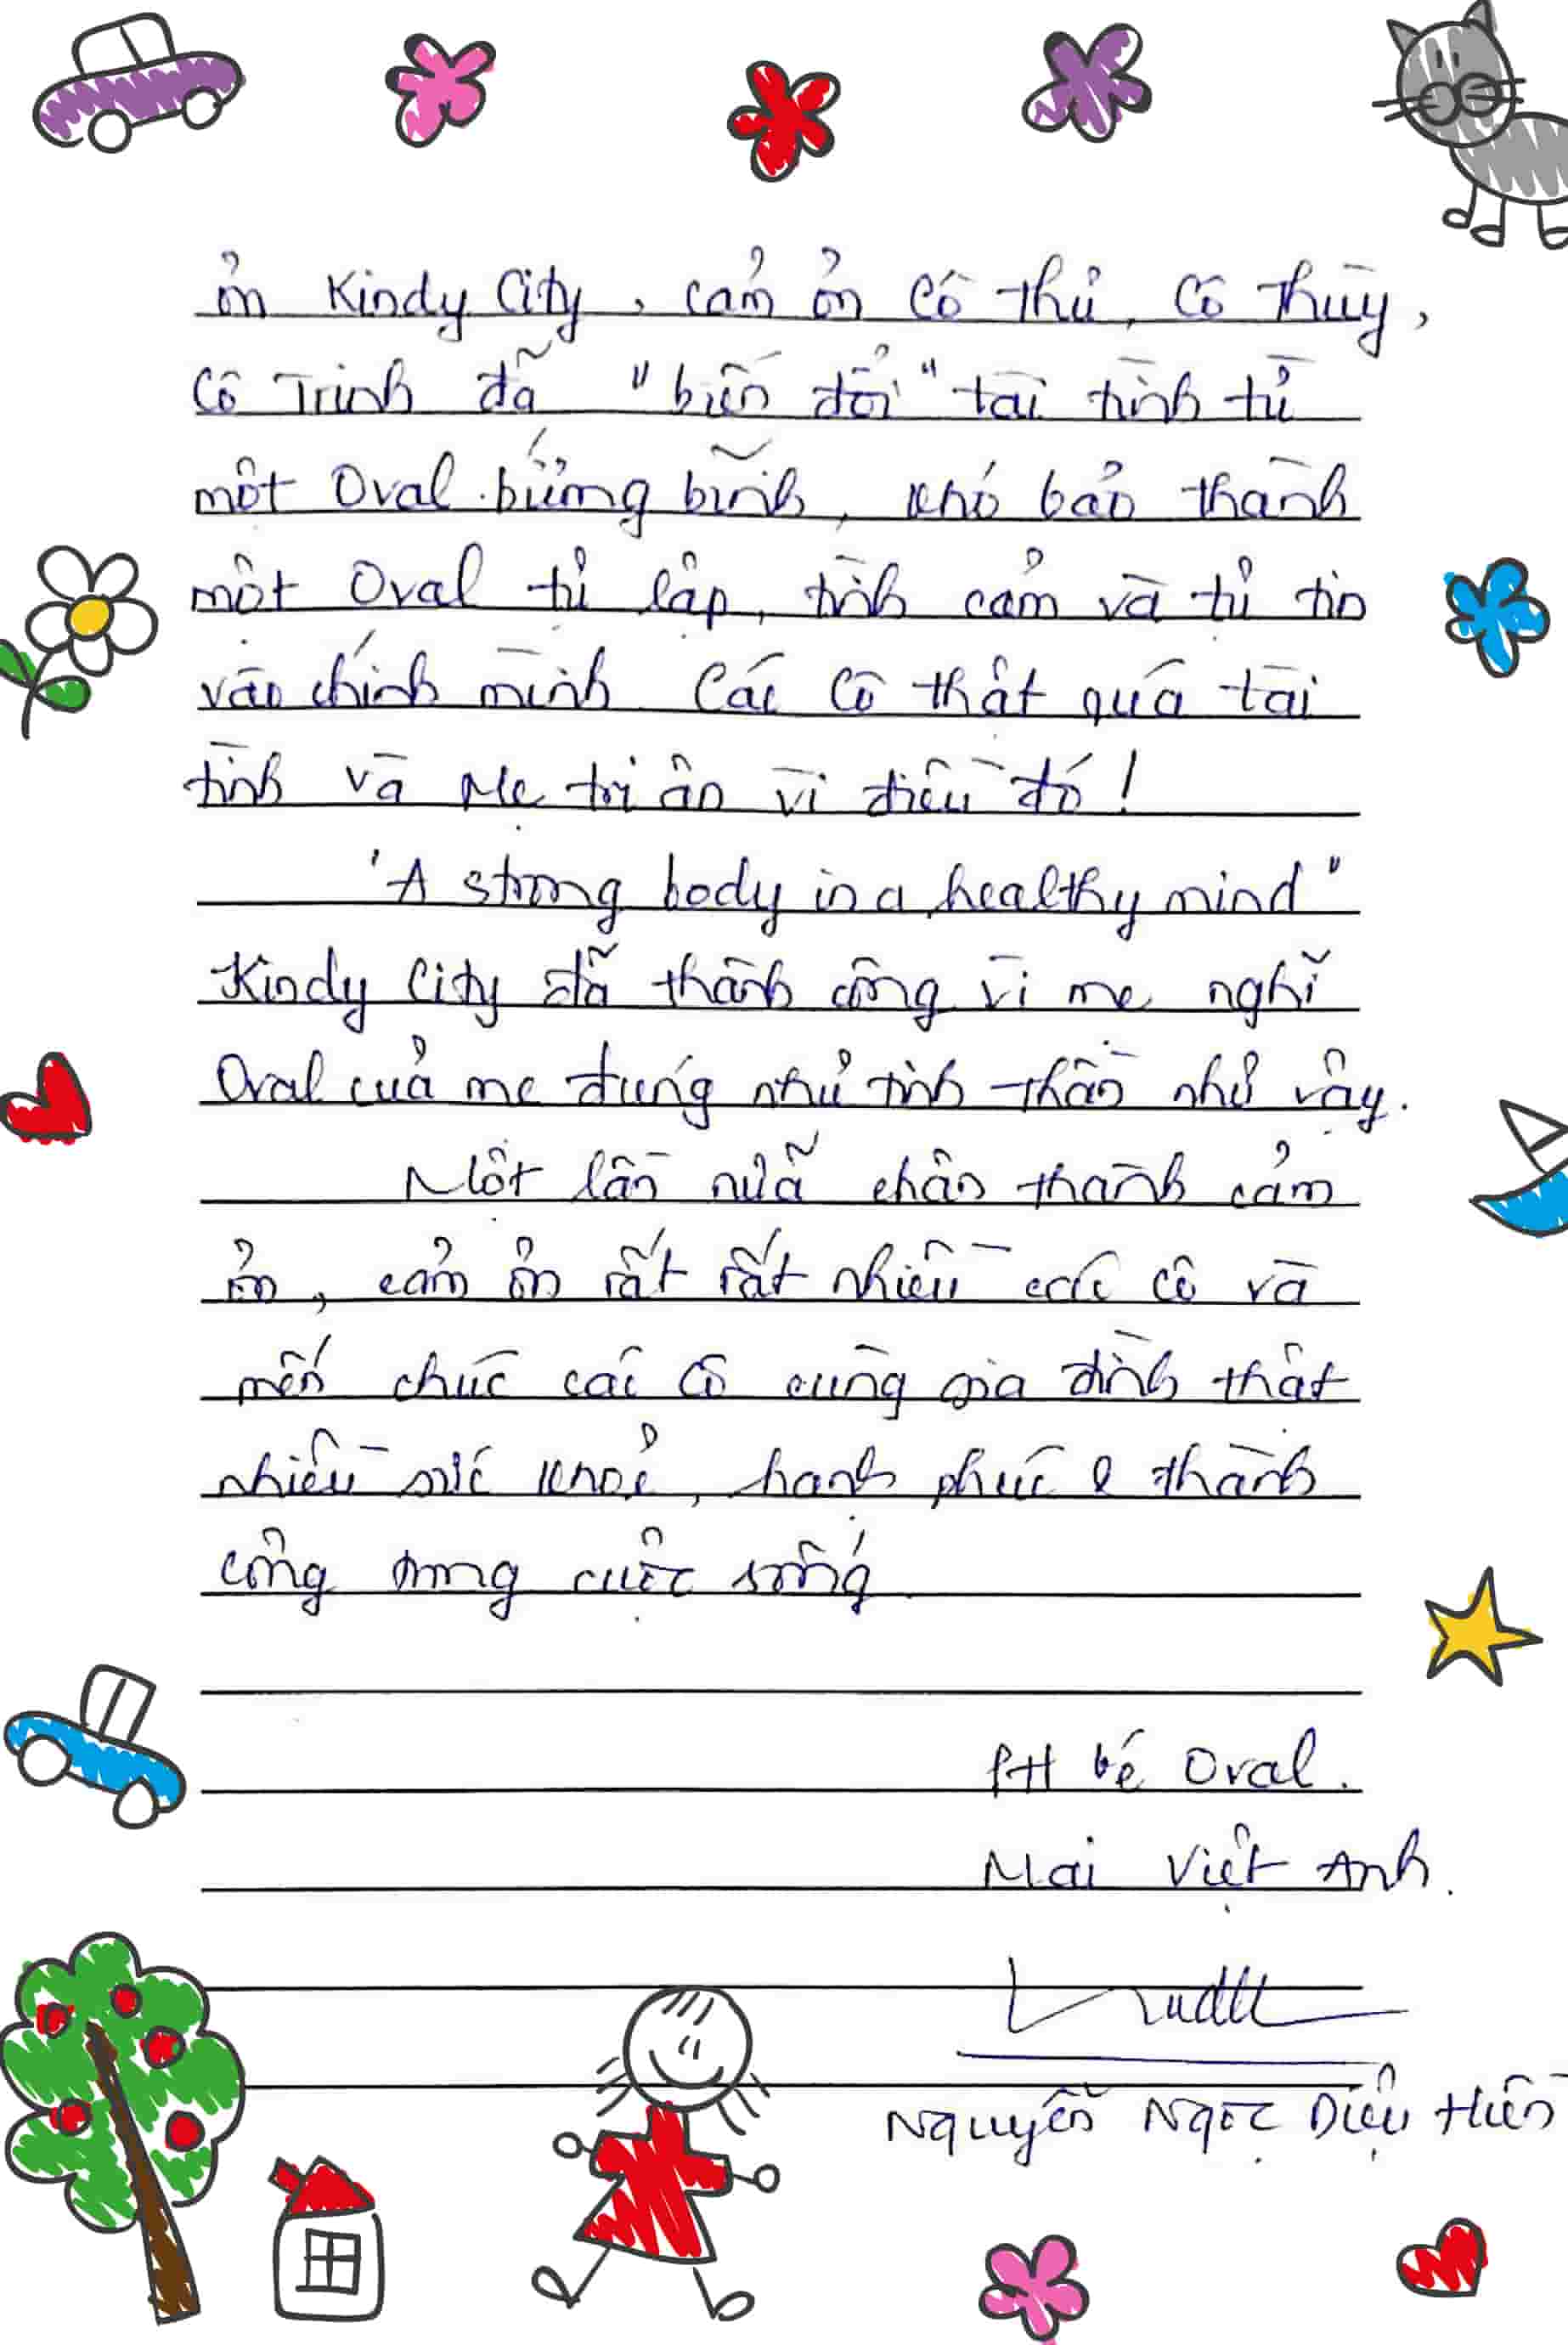 ơn Kindy City, cảm ơn Cô Thư, Cô Thùy,
Cô Trinh đã "biến đổi" tài tình từ
một Oval bướng bỉnh, khó bảo thành
một Oval tự lập, tình cảm và tự tin
vào chính mình. Các Cô thật quá tài
tình và Mẹ tri ân vì điều đó!
"A strong body in a healthy mind"
Kindy City đã thành công vì mẹ nghĩ
Oval của mẹ đúng như tinh thần như vậy.
Một lần nữa chân thành cảm
ơn, cảm ơn rất rất nhiều các cô và
mến chúc các Cô cùng gia đình thật
nhiều sức khoẻ, hạnh phúc & thành
công trong cuộc sống
PH bé Oval.
Mai Việt Anh.
Nguyễn Ngọc Diệu Hiền